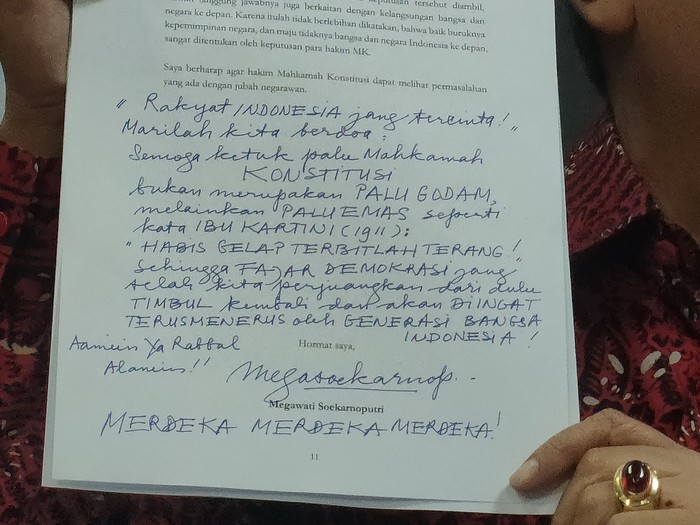 tanggung jawabnya juga berkaitan dengan kelangsungan bangsa dan
negara ke depan. Karena itulah tidak berlebihan dikatakan, bahwa baik buruknya
kepemimpinan negara, dan maju tidaknya bangsa dan negara Indonesia ke depan,
sangat ditentukan oleh keputusan para hakim MK.
Saya berharap agar hakim Mahkamah Konstitusi dapat melihat permasalahan
yang ada dengan jubah negarawan.
" Rakyat INDONESIA jang tercinta! "
Marilah kita berdoa :
Semoga ketuk palu Mahkamah
KONSTITUSI
bukan merupakan PALU GODAM,
melainkan PALU EMAS seperti
kata IBU KARTINI (1911) :
" HABIS GELAP TERBITLAH TERANG ! "
Sehingga FAJAR DEMOKRASI jang
telah kita perjuangkan dari dulu
TIMBUL kembali dan akan DIINGAT
TERUSMENERUS oleh GENERASI BANGSA
INDONESIA !
Hormat saya,
Aamiin Ya Rabbal
Alamin !!
Megasoekarnop.
Megawati Soekarnoputri
MERDEKA MERDEKA MERDEKA !
11